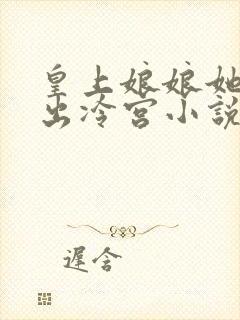 皇上娘娘她
出冷宫小說
遲含